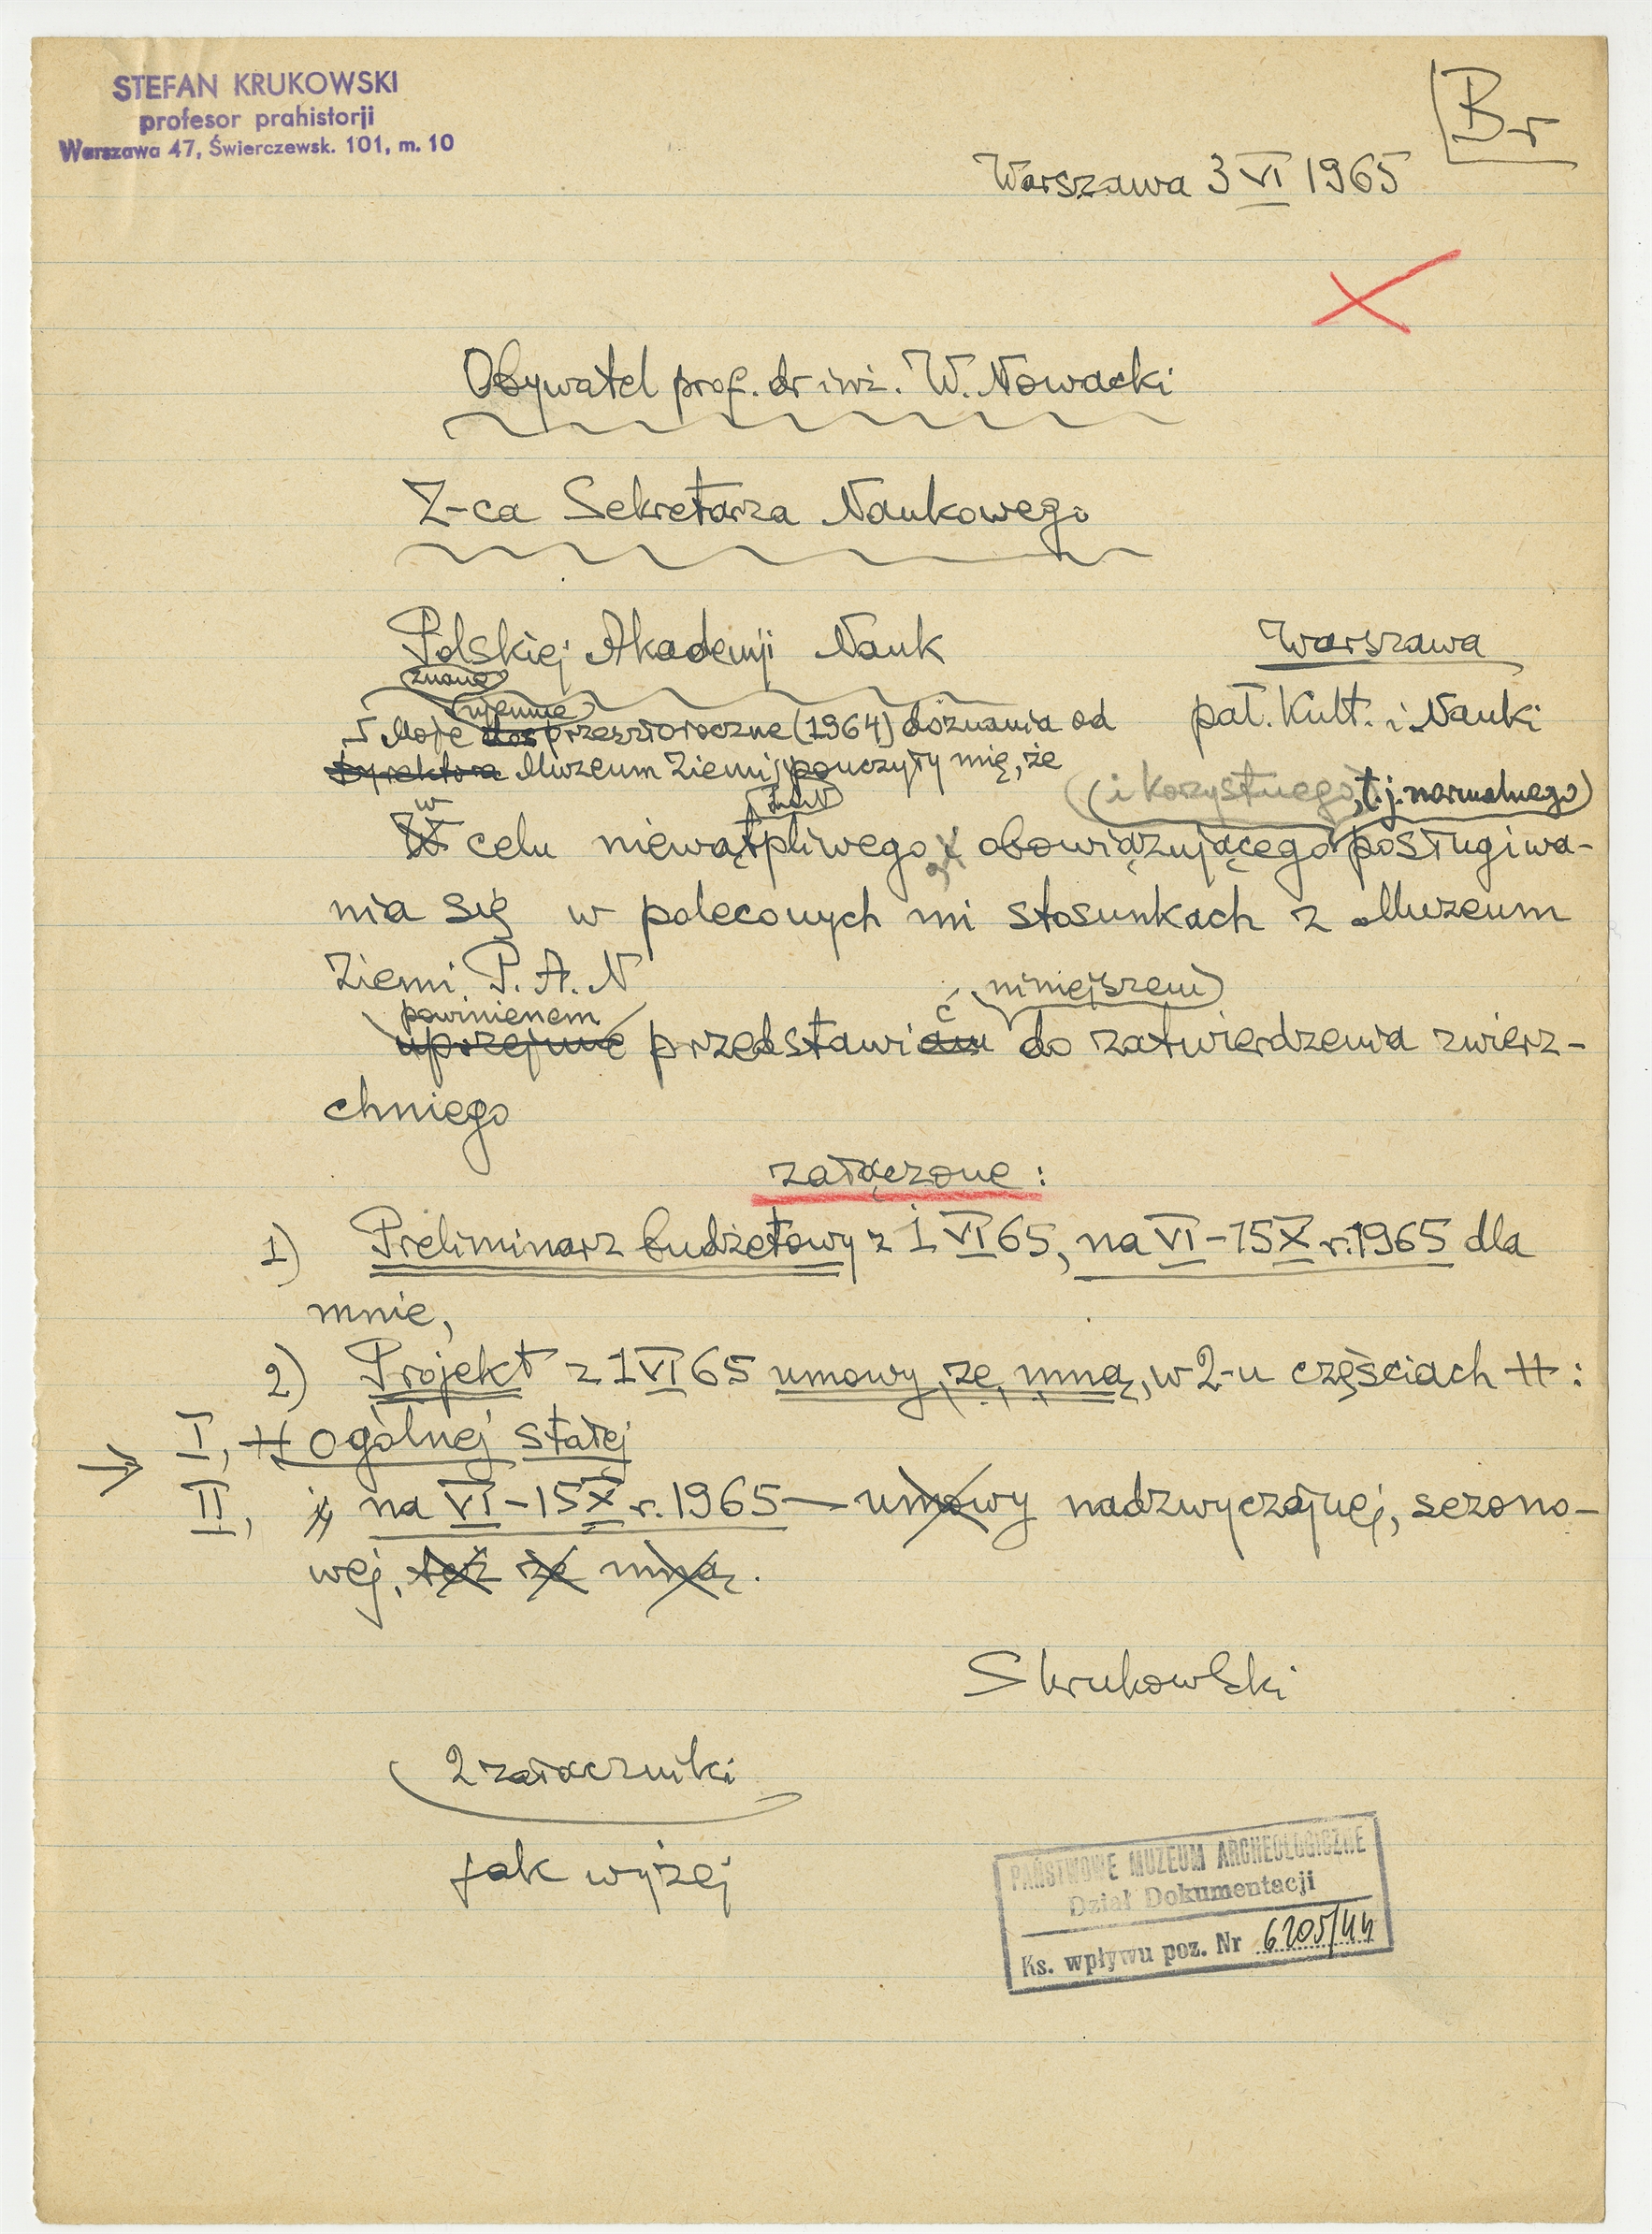 STEFAN KRUKOWSKI
profesor prahistorji
Warszawa 47, Świerczewsk. 101, m. 10
Br
Warszawa 3 VI 1965
Obywatel prof. dr inż. W. Nowacki
Z-ca Sekretarza Naukowego
Polskiej Akademji Nauk
Warszawa
znane
ujemne
Moje przeszłoroczne (1964) doznania od
pał. Kult. i Nauki
dyrektora Muzeum Ziemi pouczyły mię, że
(i korzystnego, t.j. normalnego)
w
W celu niewątpliwego obowiązującego posługiwa-
nia się w poleconych mi stosunkach z Muzeum
Ziemi P.A.N
powinienem
ć niniejszem
uprzejmie przedstawiam do zatwierdzenia zwierz-
chniego
załączone:
1) Preliminarz budżetowy z 1 VI 65, na VI-15X r. 1965 dla
mnie,
2) Projekt z 1 VI 65 umowy ze mną, w 2-u częściach:
I, ogólnej stałej
II, na VI-15X r. 1965 — umowy nadzwyczajnej, sezono-
wej, też ze mną.
SKrukowski
2 załaczniki
jak wyżej
PAŃSTWOWE MUZEUM ARCHEOLOGICZNE
Dział Dokumentacji
Ks. wpływu poz. Nr 6205/44